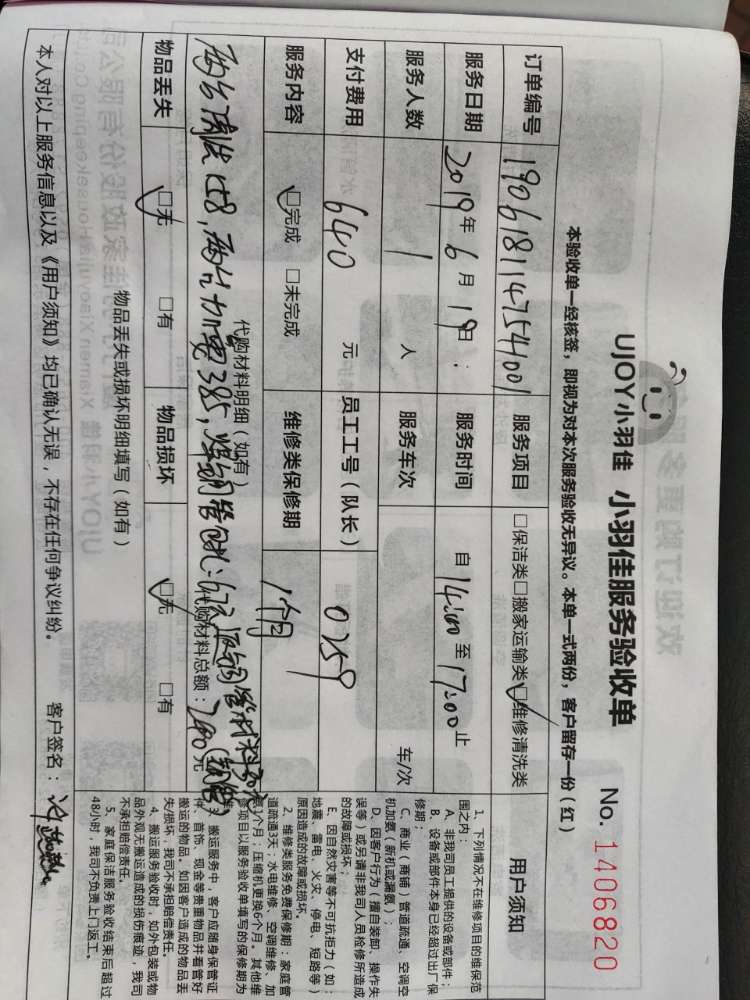 UJOY小羽佳 小羽佳服务验收单
No. 1406820
本验收单一经核签，即视为对本次服务验收无异议。本单一式两份，客户留存一份（红）
订单编号 190618114754001 服务项目 □保洁类□搬家运输类☑维修清洗类
服务日期 2019年6月19日： 服务时间 自14:00至17:00止
服务人数 1 人 服务车次 车/次
支付费用 640 元 员工工号（队长） 0759
服务内容 ☑完成 □未完成 维修类保修期 1个月
代购材料明细（如有）
两台清洗158，两台加雪385，
代购材料总额：200元
物品丢失 ☑无 □有 物品损坏 ☑无 □有
物品丢失或损坏明细填写（如有）
本人对以上服务信息以及《用户须知》均已确认无误，不存在任何争议纠纷。
客户签名：
用户须知
1、下列情况不在维修项目的维保范
围之内：
A、非我司员工提供的设备或部件；
B、设备或部件本身已经超过出厂保
修期；
C、商业（商铺）管道疏通、空调空
机加氨（新机或漏氨）；
D、因客户行为（擅自装卸、操作失
误等）或另请非我司人员检修所造成
的故障或损坏；
E、因自然灾害等不可抗拒力（如：
地震、雷电、火灾、停电、短路等）
原因造成的故障或损坏。
2、维修类服务免费保修期：家庭管
道疏通3天；水电维修、空调维修、加
氨1个月；压缩机更换6个月。其他维
修项目以服务验收单填写的保修期为
3、搬运服务中，客户应随身保管证
件、首饰、现金等贵重物品并看管好
搬运的物品，如因客户造成的物品丢
失/损坏，我司不承担赔偿责任。
4、搬运服务验收时，如外包装或物
品外观无搬运造成的损伤痕迹，我司
不承担赔偿责任。
5、家庭保洁服务验收结束后超过
48小时，我司不负责上门返工。